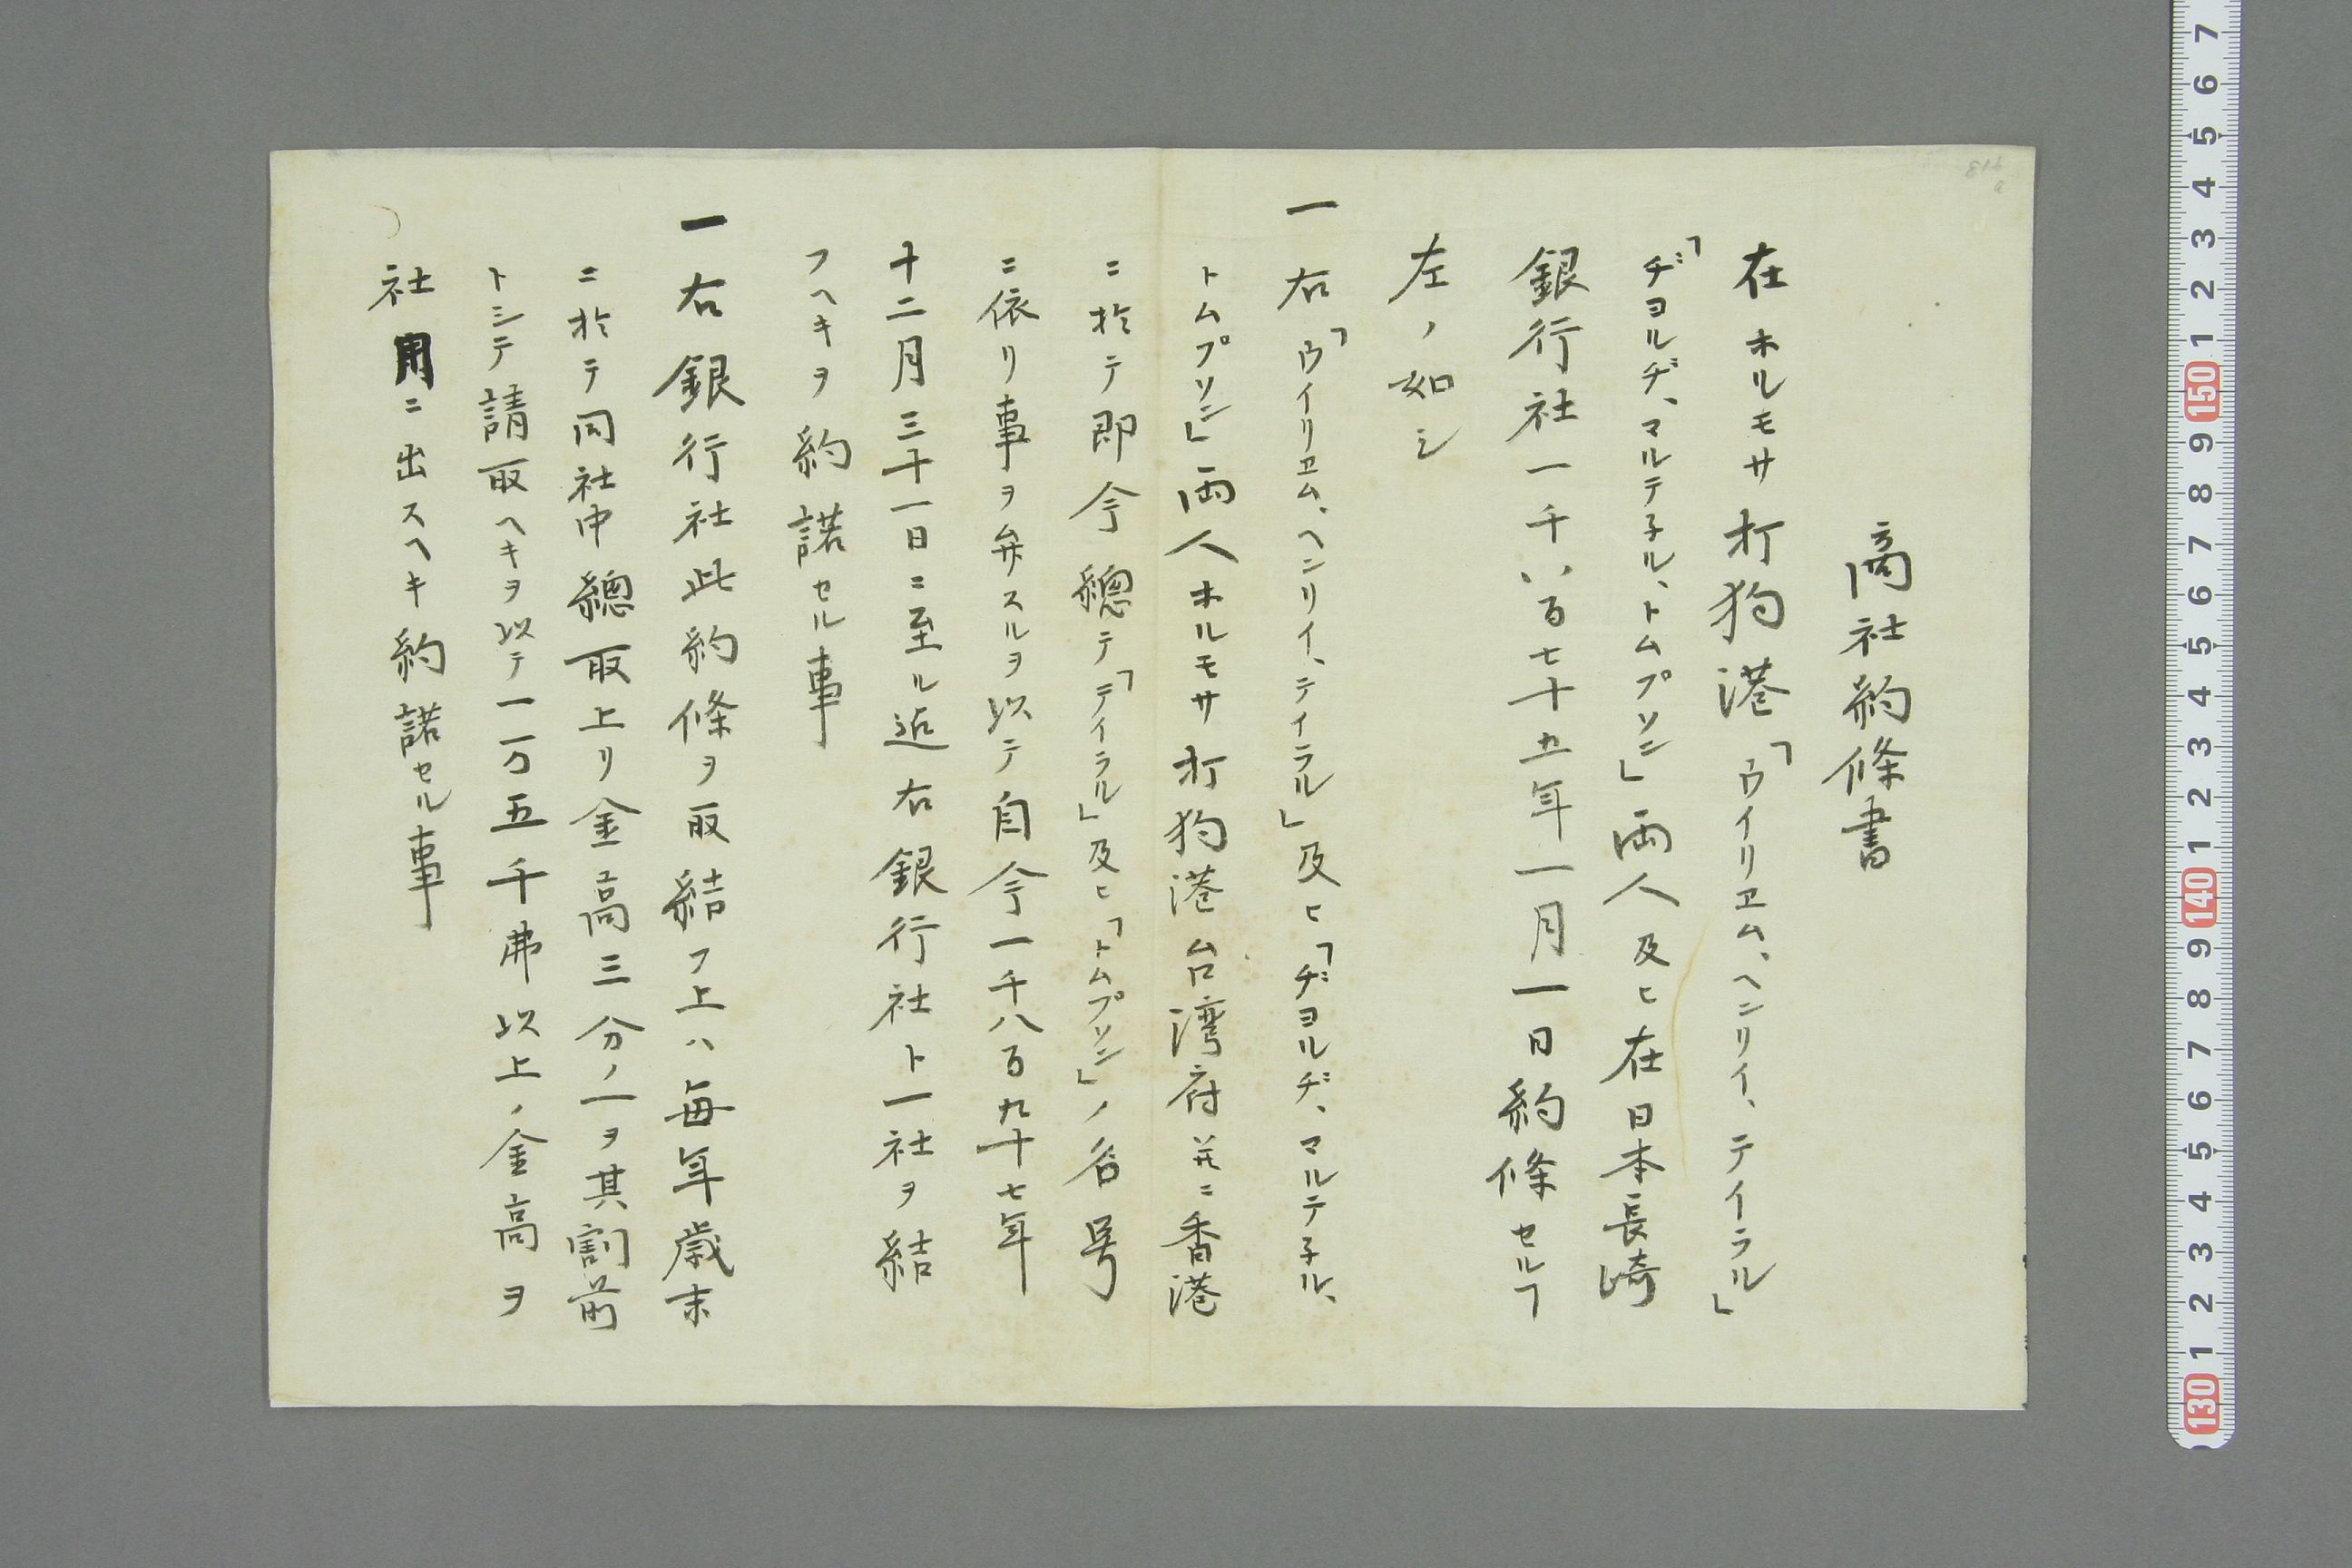 商社約條書
在ホルモサ打狗港「ウイリヱム、ヘンリイ、テイラル」
「ヂヨルヂ、マルテ子ル、トムプソン」両人及ヒ在日本長崎
銀行社一千八百七十五年一月一日約條セルヿ
左ノ如シ
一右「ウイリヱム、ヘンリイ、テイラル」及ヒ「ヂヨルヂ、マルテ子ル、
トムプソン」両人ホルモサ打狗港台湾府並ニ香港
ニ於テ即今總テ「テイラル」及ヒ「トムプソン」ノ名号
ニ依リ事ヲ弁スルヲ以テ自今一千八百九十七年
十二月三十一日ニ至ル迄右銀行社ト一社ヲ結
フヘキヲ約諾セル事
一右銀行社此約條ヲ取結フ上ハ毎年歳末
ニ於テ同社中總取上リ金高三分ノ一ヲ其割前
トシテ請取ヘキヲ以テ一万五千弗以上ノ金高ヲ
社用ニ出スヘキ約諾セル事
7 6 5 4 3 2 1 150 9 8 7 6 5 4 3 2 1 140 9 8 7 6 5 4 3 2 1 130